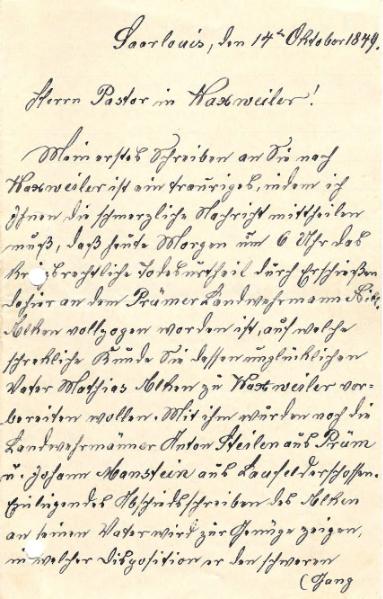 Saarlouis, den 14ten Oktober 1849.
Herrn Pastor in Waxweiler!
Mein erstes Schreiben an Sie nach
Waxweiler ist ein trauriges, indem ich
Ihnen die schmerzliche Nachricht mittheilen
muß, daß heute Morgen um 6 Uhr das
kriegsrechtliche Todesurtheil durch Erschießen
dahier an dem Prümer Landwehrmann Nik.
Alken vollzogen worden ist, auf welche
schrekliche Kunde Sie dessen unglücklichen
Vater Mathies Alken zu Waxweiler vor-
bereiten wollen. Mit ihm wurden noch die
Landwehrmänner Anton Seilen aus Prüm
u. Johann Manstein aus Laufeld erschossen.
Einliegendes Abschiedsschreiben des Alken
an seinen Vater wird zur Genüge zeigen,
in welcher Disposition er den schweren
(Gang